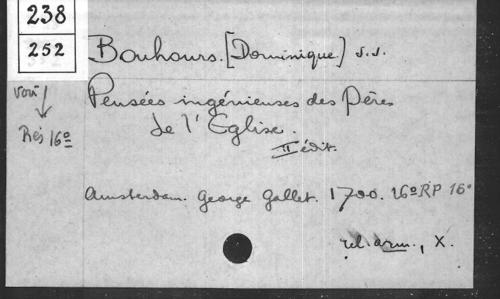 238
252
Bouhours. [Dominique] s.s.
voir
Pensées ingénieuses des Pères
Rés 16º
de l'Eglise.
II édit.
Amsterdam. George Gallet. 1700. 16º RP 16º
rel. arm., X.